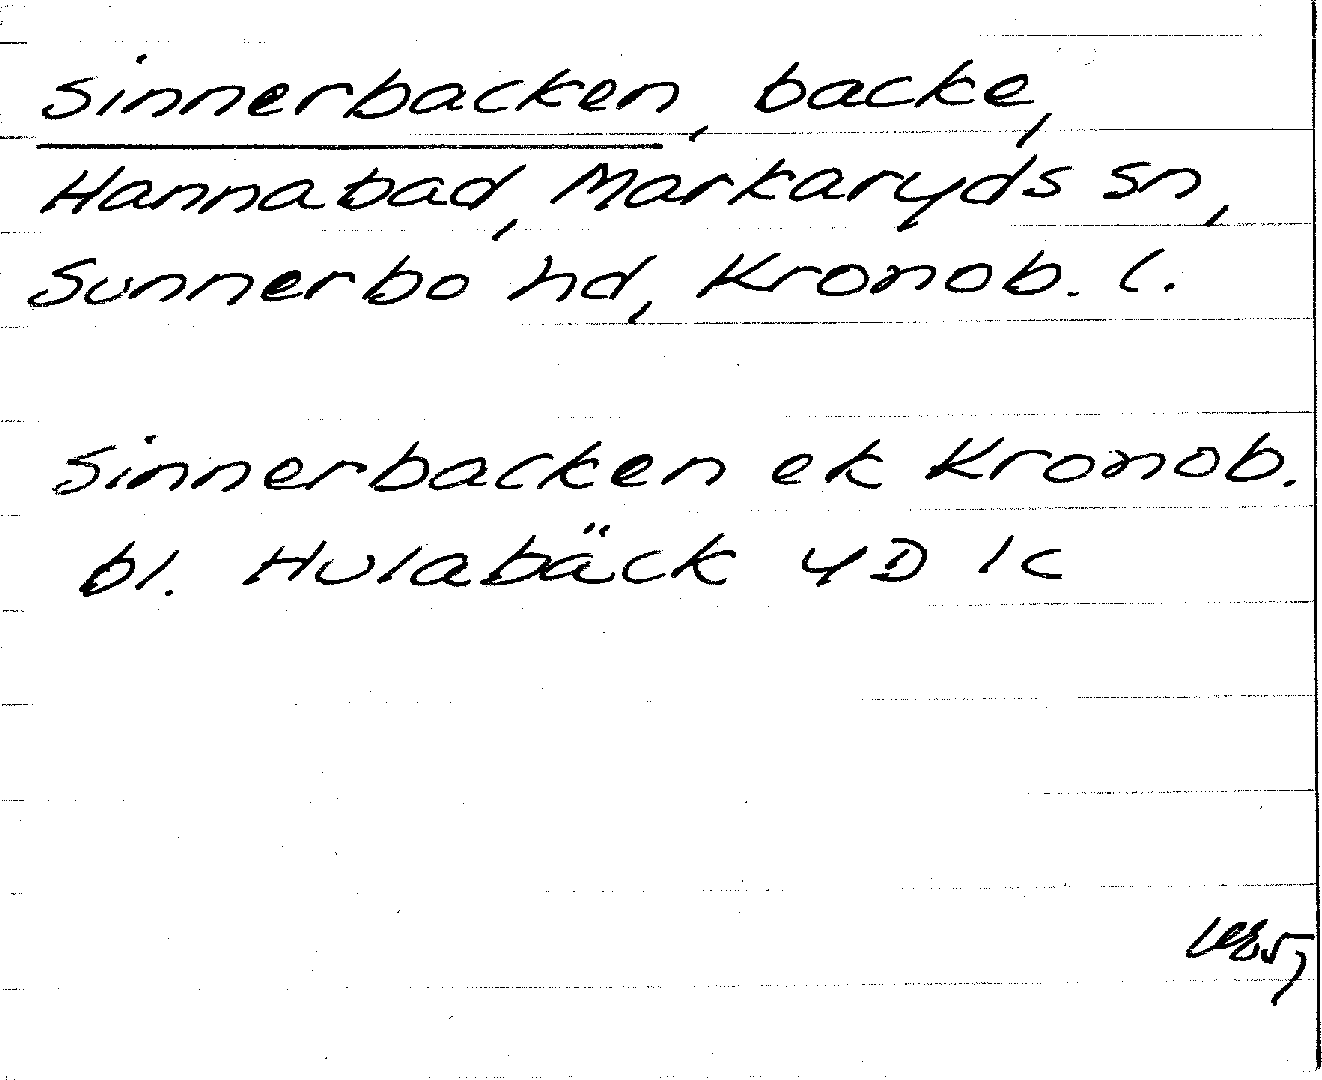 Sinnerbacken, backe,
Hannabad, Markaryds sn,
Sunnerbo hd, Kronob. l.
Sinnerbacken ek Kronob.
bl. Hulabäck 4D 1c